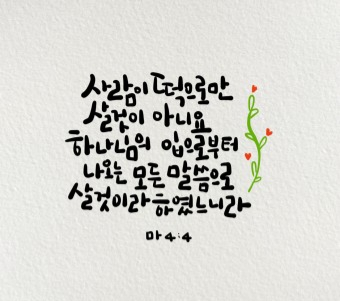 사람이 떡으로만
살것이 아니요
하나님의 입으로부터
나오는 모든 말씀으로
살것이라 하였느니라
마 4:4